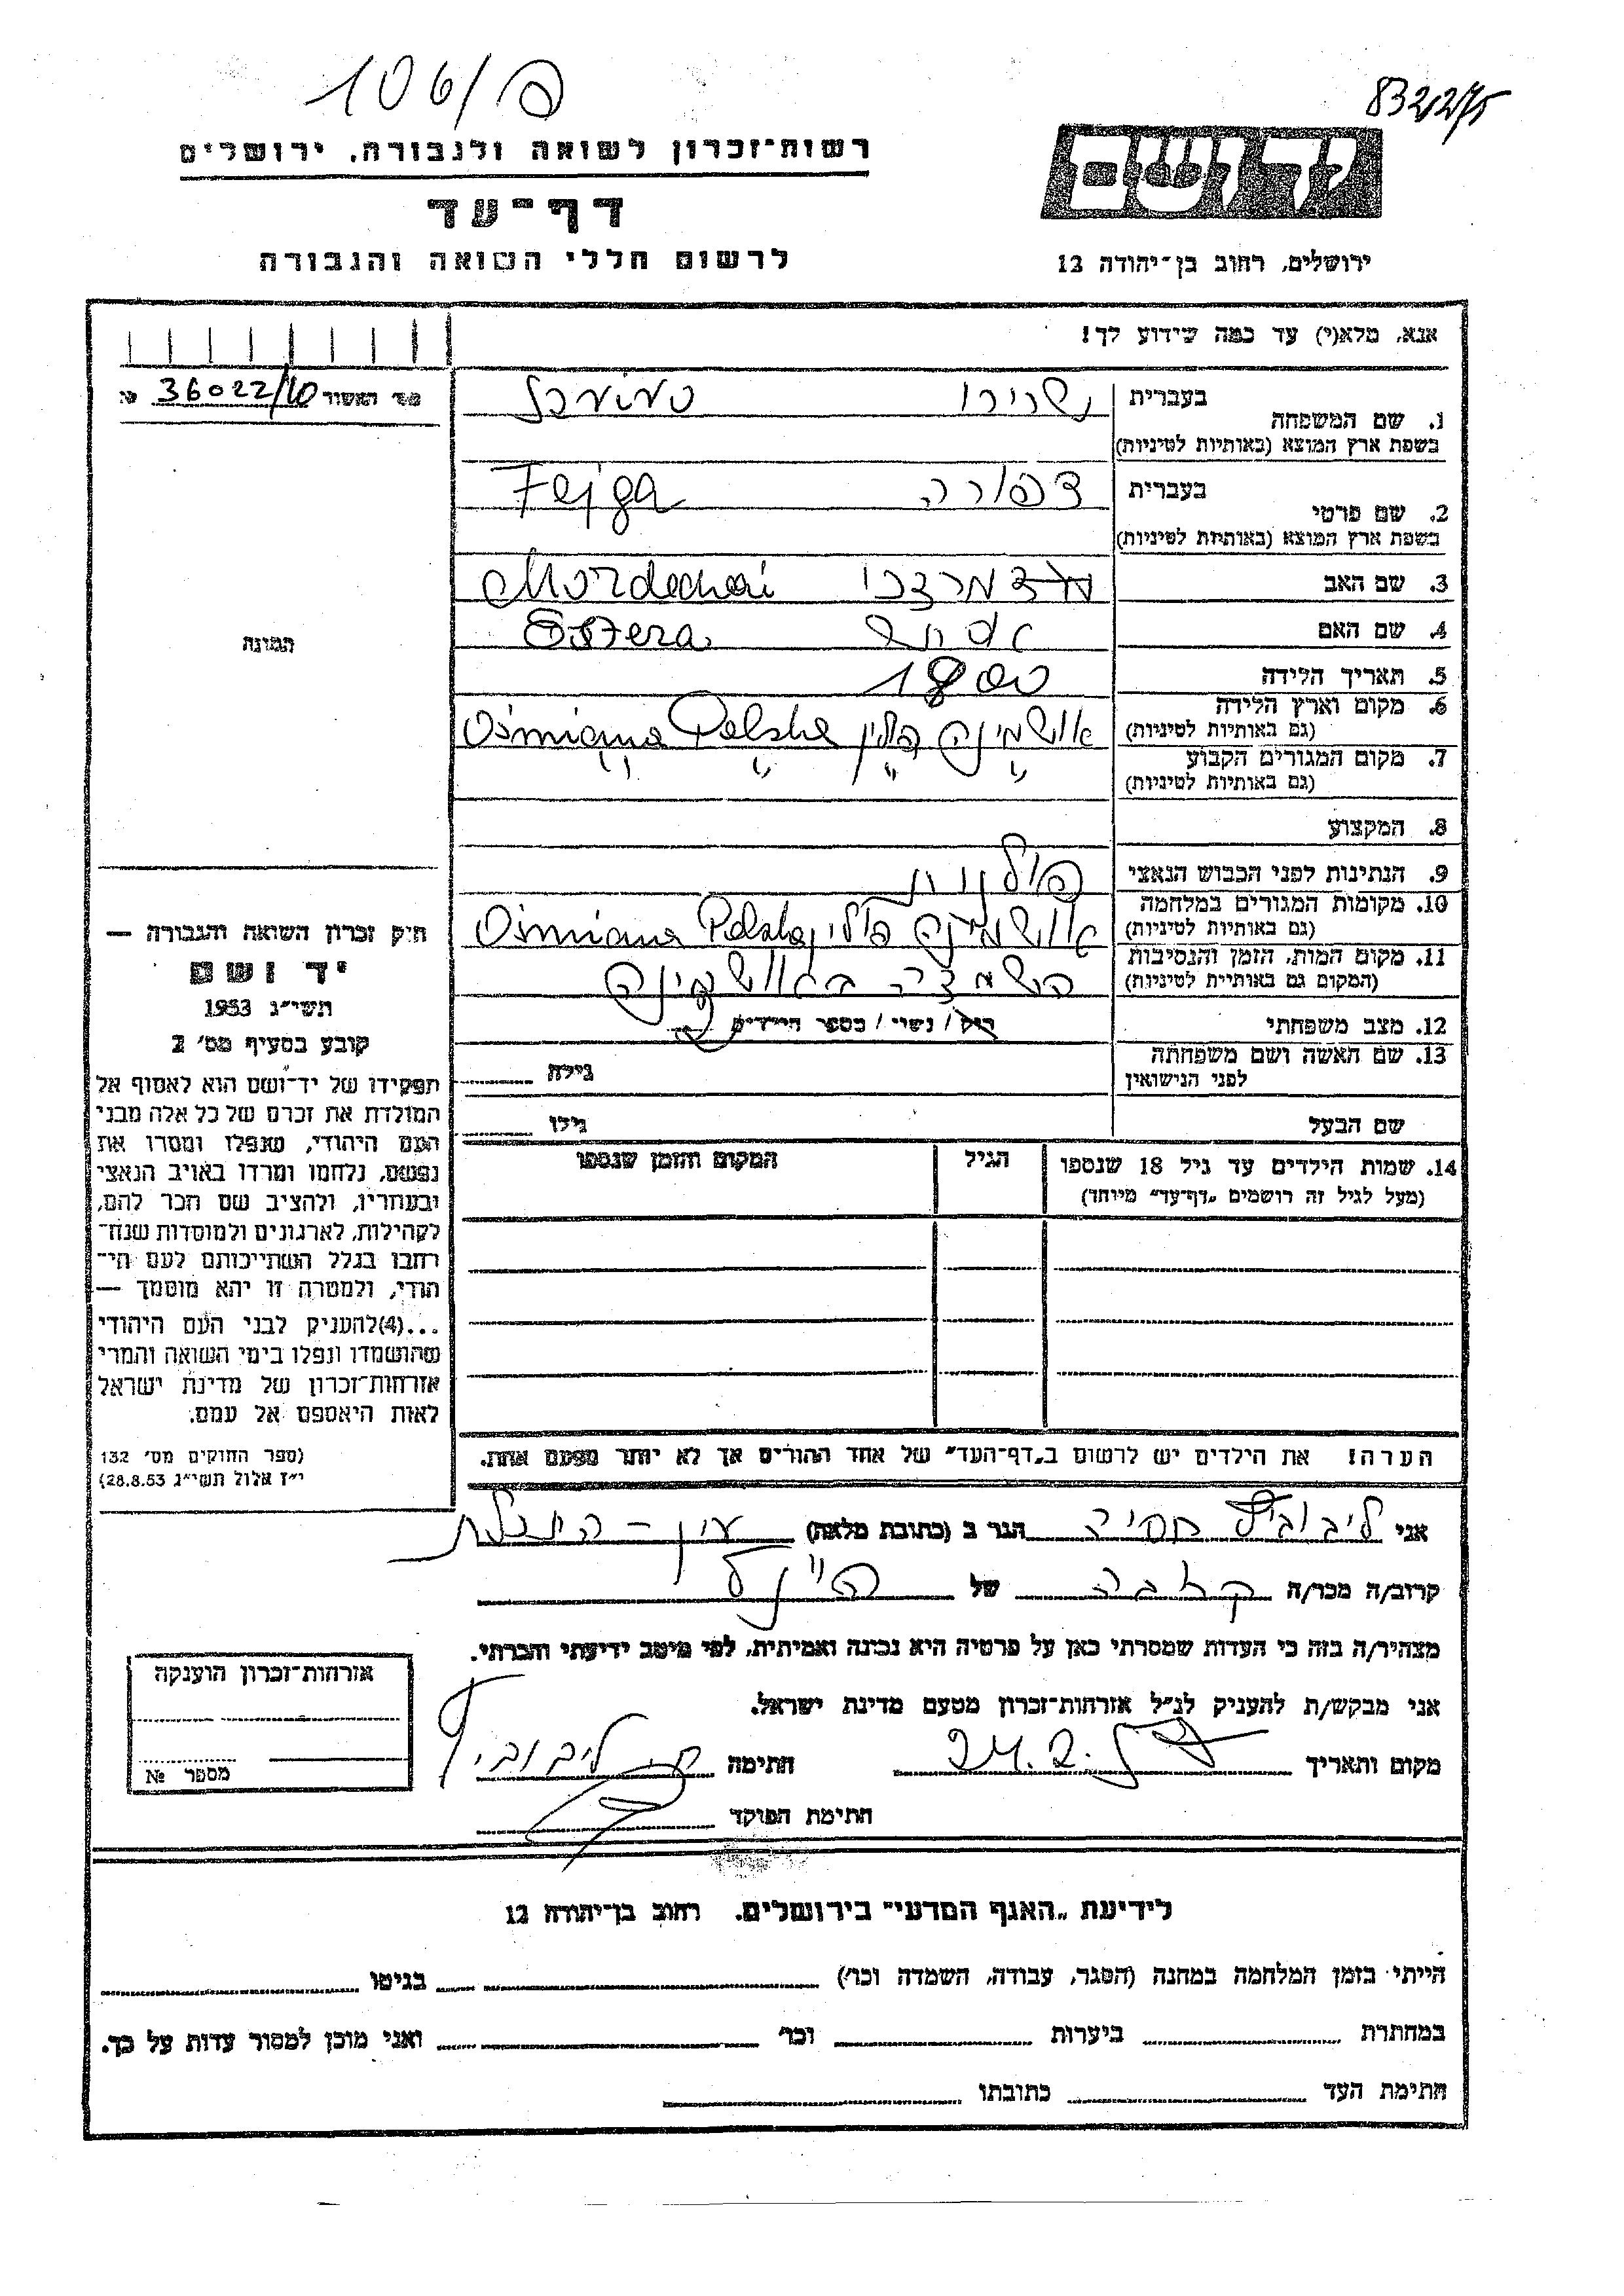 106/פ
83212/75
רשות־זכרון לשואה ולגבורה, ירושלים
דף־עד
לרשום חללי השואה והגבורה
ידושם
ירושלים, רחוב בן־יהודה 12
אנא, מלא(י) עד כמה שידוע לך!
מס' האשור 36022/40
1. שם המשפחה
בעברית
בשפת ארץ המוצא (באותיות לטיניות)
2. שם פרטי
בעברית צפורה Fejga
בשפת ארץ המוצא (באותיות לטיניות)
3. שם האב מרדכי Mordechai
4. שם האם אסתר Estera
5. תאריך הלידה 1800
6. מקום וארץ הלידה אושמינה פולין Ośmiana Polska
(גם באותיות לטיניות)
7. מקום המגורים הקבוע
(גם באותיות לטיניות)
8. המקצוע
9. הנתינות לפני הכבוש הנאצי פולנית
10. מקומות המגורים במלחמה אושמינה פולין Ośmiana Polska
(גם באותיות לטיניות)
11. מקום המות, הזמן והנסיבות באושמינה
(המקום גם באותיות לטיניות)
12. מצב משפחתי רוק / נשוי / מספר הילדים
13. שם האשה ושם משפחתה
לפני הנישואין
גילה
שם הבעל
גילו
14. שמות הילדים עד גיל 18 שנספו
(מעל לגיל זה רושמים „דף־עד” מיוחד)
הגיל
המקום והזמן שנספו
הערה! את הילדים יש לרשום ב„דף־העד” של אחד ההורים אך לא יותר מפעם אחת.
התמונה
חיק זכרון השואה והגבורה —
יד ושם
תשי״ג 1953
קובע בסעיף מס׳ 2
תפקידו של יד־ושם הוא לאסוף אל
המולדת את זכרם של כל אלה מבני
העם היהודי, שנפלו ומסרו את
נפשם, נלחמו ומרדו באויב הנאצי
ובעוזריו, ולהציב שם וזכר להם,
לקהילות, לארגונים ולמוסדות שנח־
רבו בגלל השתייכותם לעם הי־
הודי, ולמטרה זו יהא מוסמך —
...(4)להעניק לבני העם היהודי
שהושמדו ונפלו בימי השואה והמרי
אזרחות־זכרון של מדינת ישראל
לאות היאספם אל עמם.
(ספר החוקים מס׳ 132
י״ז אלול תשי״ג 28.8.53)
אני ליבוביץ חסיה הגר ב (כתובת מלאה) עין־
קרוב/ה מכר/ה קרובה של
מצהיר/ה בזה כי העדות שמסרתי כאן על פרטיה היא נכונה ואמיתית, לפי מיטב ידיעתי והכרתי.
אני מבקש/ת להעניק לנ״ל אזרחות־זכרון מטעם מדינת ישראל.
מקום ותאריך 24.2. חתימה ח. ליבוביץ
חתימת הפוקד
אזרחות־זכרון הוענקה
מספר №
לידיעת „האגף המדעי” בירושלים, רחוב בן־יהודה 12
הייתי בזמן המלחמה במחנה (הסגר, עבודה, השמדה וכו׳) בגיטו
במחתרת ביערות וכו׳ ואני מוכן למסור עדות על כך.
חתימת העד כתובתו